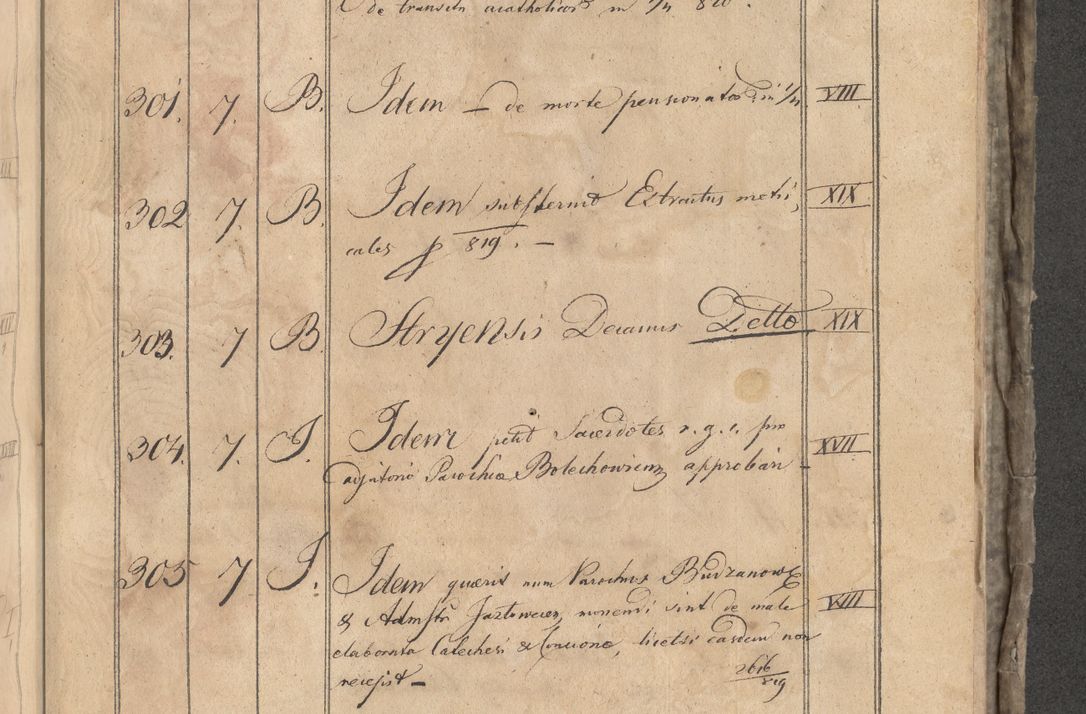 de transitu acatholicor. in 1/4 820.
301. 7. B. Idem — de morte pensionator. in 1/4 VIII
302 7. B. Idem substernit Extractus metri, XIX
cales p 819. —
303. 7 B. Stryensis Decanus Detto XIX
304. 7. J. Idem petit Sacerdotes r. g. c. pro XVII
adjutorio Parochiae Bolechoviens approbari —
305 7 J. Idem quaerit num Parochus Budzanow
& Admstr Jazłowecen, monendi sint de male XVIII
elaborata Catechesi & Concione, licetsi easdem non
recepit — 2616/819